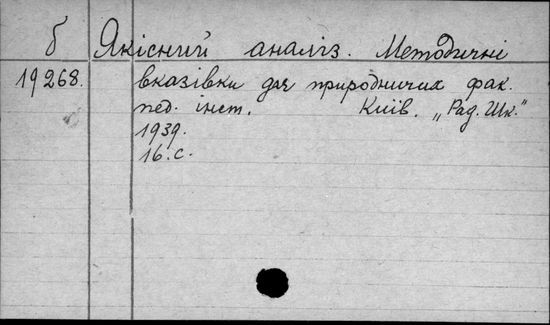 б Якісний аналіз. Методичні
19268. вказівки для природничих фак.
пед. інст. Київ. „Рад. Шк."
1939.
16. с.